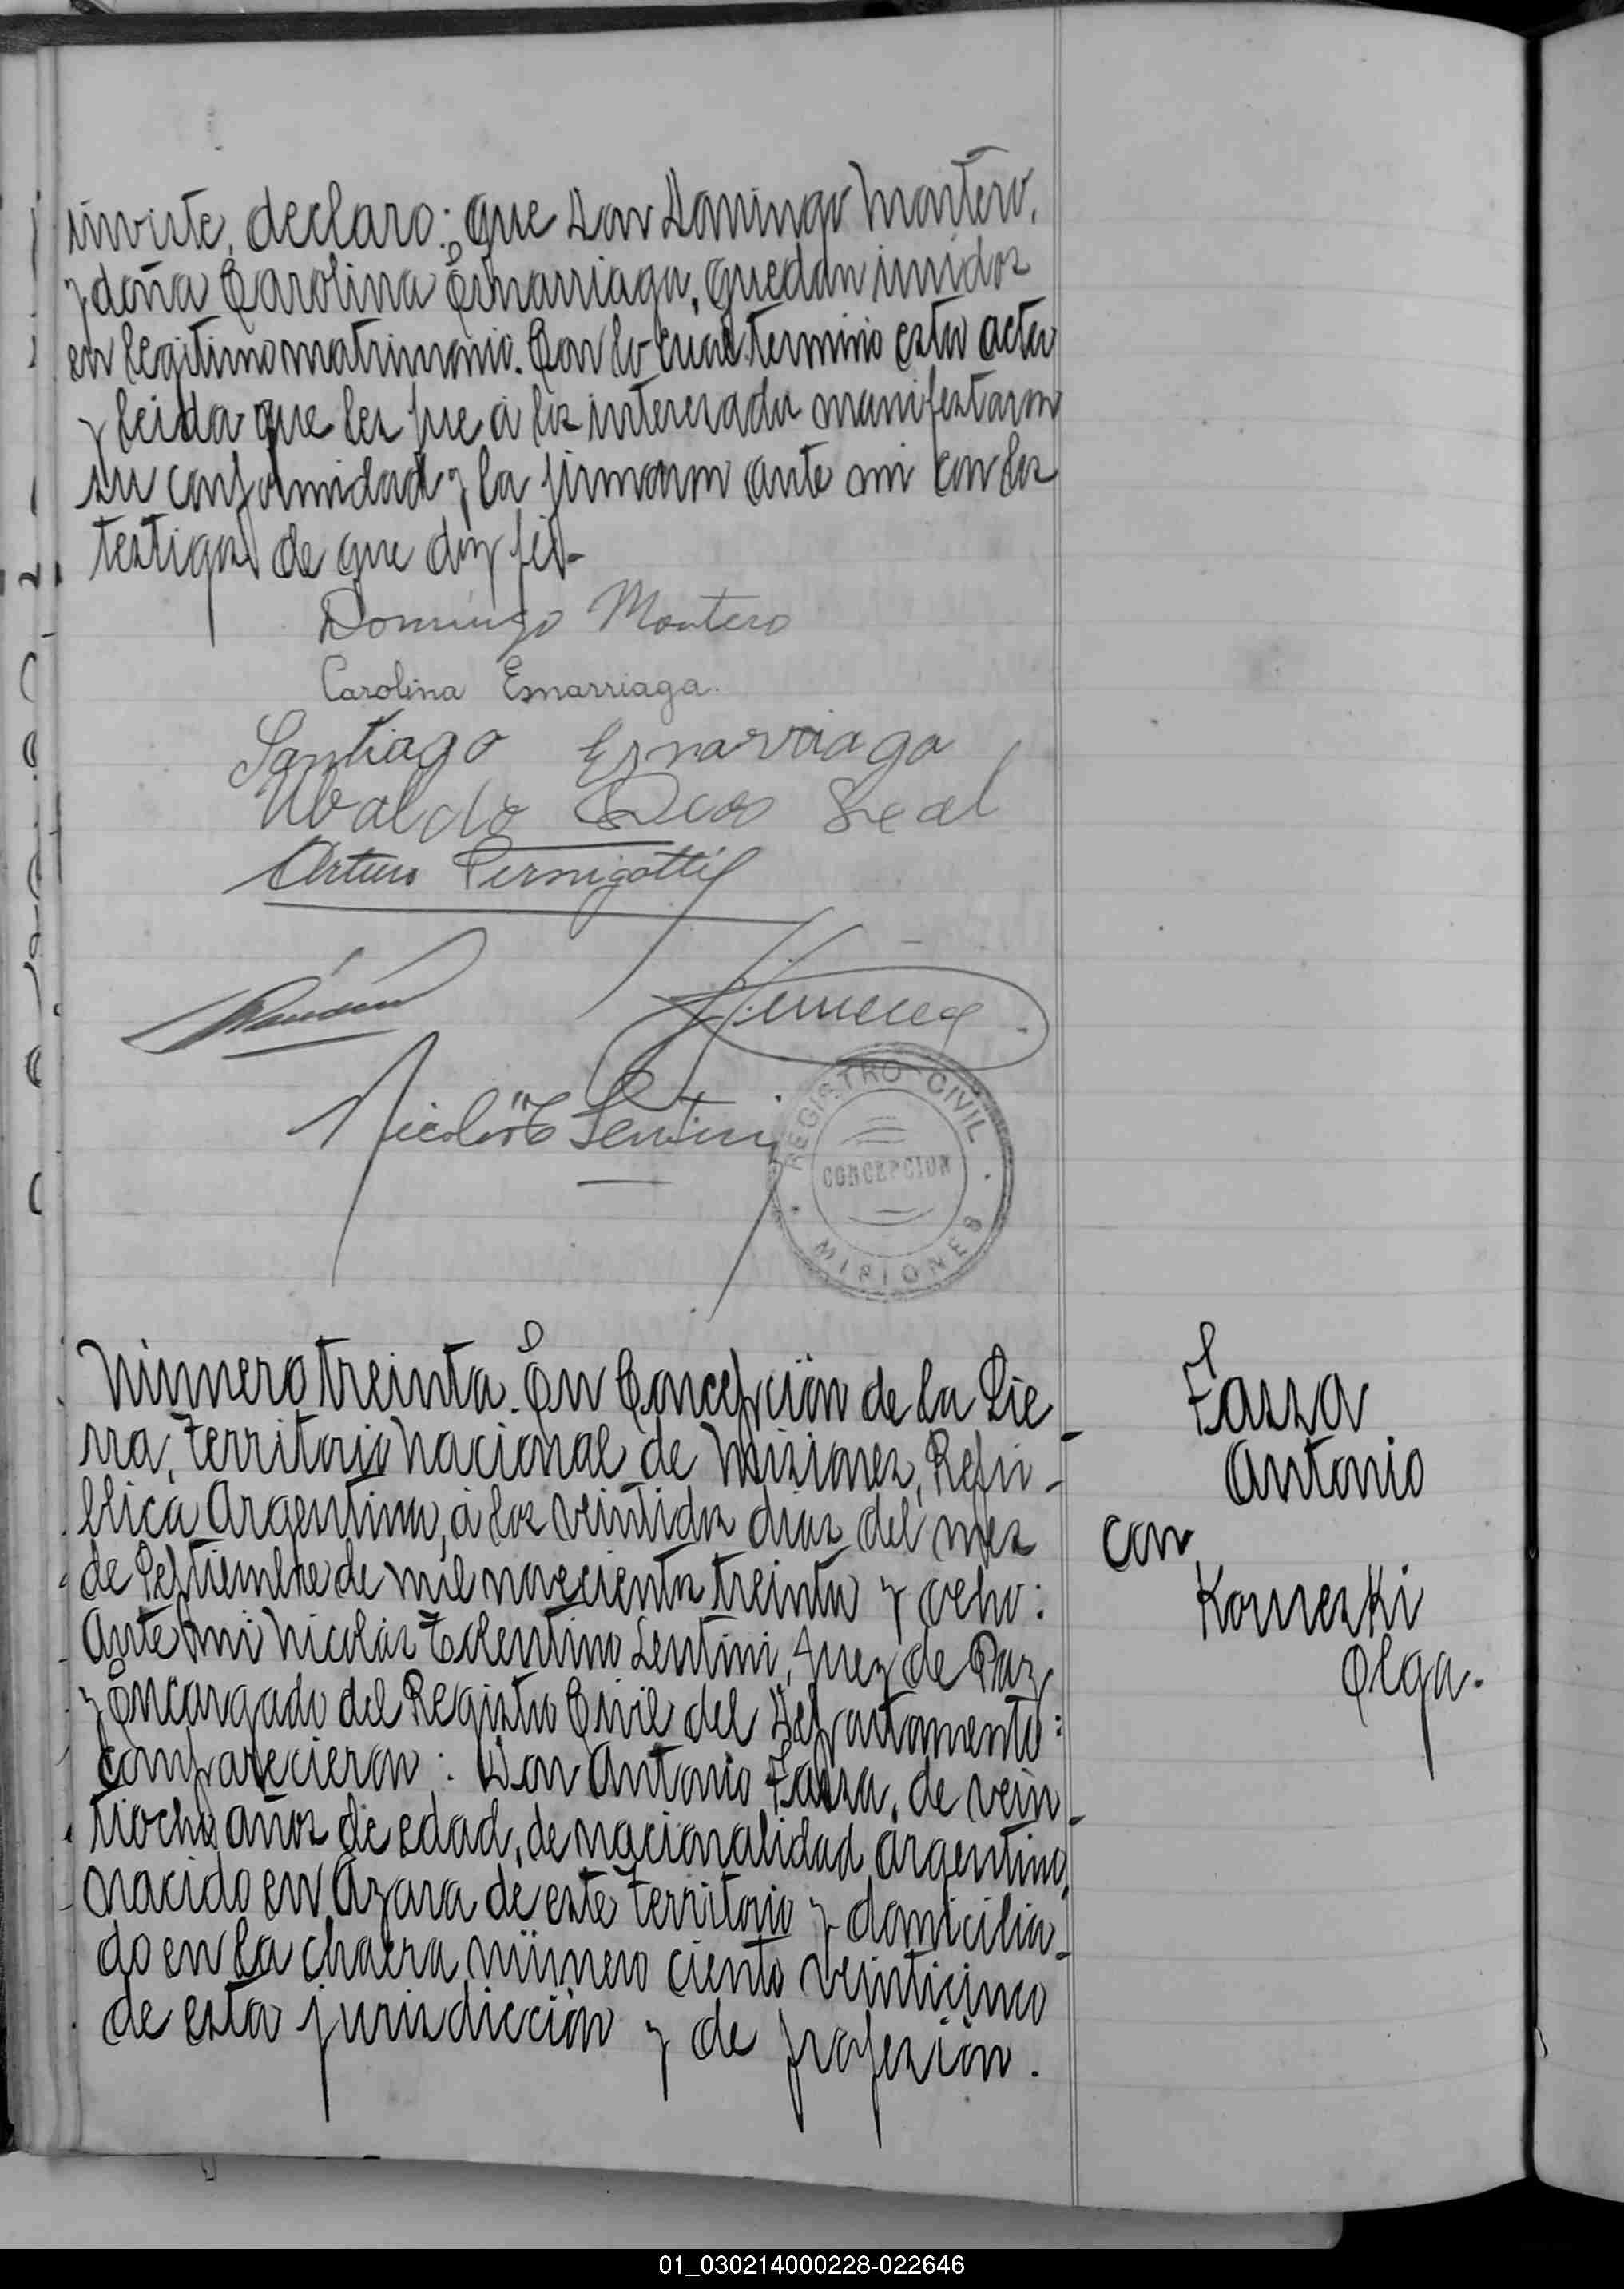 inviste, declaro: que Don Domingo Montero,
y doña Carolina Esnarriaga, quedan unidos
en legitimo matrimonio. Con lo cual terminó esta acta
y leida que les fue á los interesados manifestaron
su conformidad y la firmaron ante mi con los
testigos de que doy fé.-
Domingo Montero
Carolina Esnarriaga.
Santiago Esnarriaga
Ubaldo Leal
Arturo Pernigotti
Jimenez
Nicolás T Lentini
REGISTRO CIVIL
CONCEPCION
MISIONES
Número treinta. En Concepción de la Sie-
rra, Territorio Nacional de Misiones, Repú-
blica Argentina, á los veintidos dias del mes
de Septiembre de mil novecientos treinta y ocho:
Ante mi Nicolás Tolentino Lentini, Juez de Paz
y Encargado del Registro Civil del Departamento:
comparecieron: Don Antonio Zassa, de vein-
tiocho años de edad, de nacionalidad argentino,
nacido en Azara de este Territorio y domicilia-
do en la chacra número ciento veinticinco
de esta jurisdicción y de profesión.
Zassa
Antonio
con
Komeski
Olga.
01_030214000228-022646